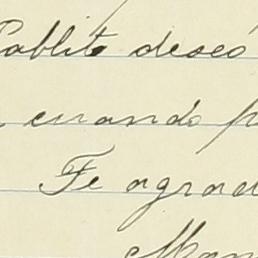 Pablito deseó
cuando p
Te agrad
Man